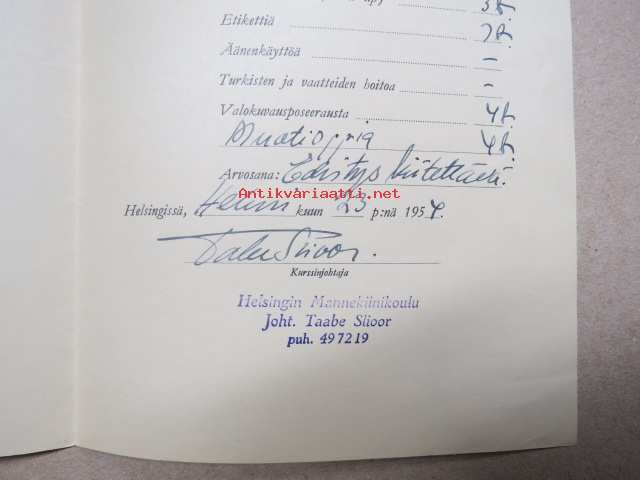 3 t.
Etikettiä 2 t.
Äänenkäyttöä –
Turkisten ja vaatteiden hoitoa –
Valokuvausposeerausta 4 t.
Muatioppia 4 t.
Arvosana: Edistys kiitettävä.
Antikvariaatti.net
Helsingissä, Helmi kuun 23 p:nä 1954.
Taabe Slioor.
Kurssinjohtaja
Helsingin Mannekiinikoulu
Joht. Taabe Slioor
puh. 497219